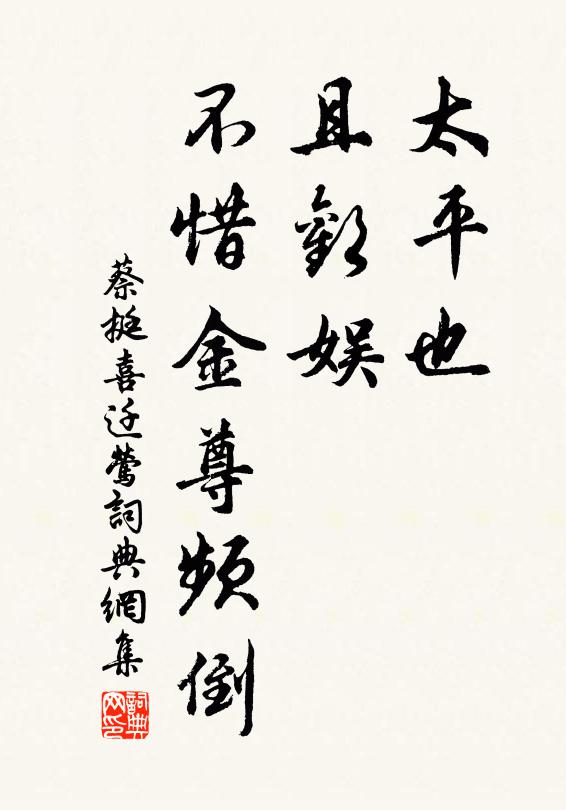 太平也
且歡娛
不惜金尊頻倒
蔡挺喜迁鶯詞典網集
詞典网印